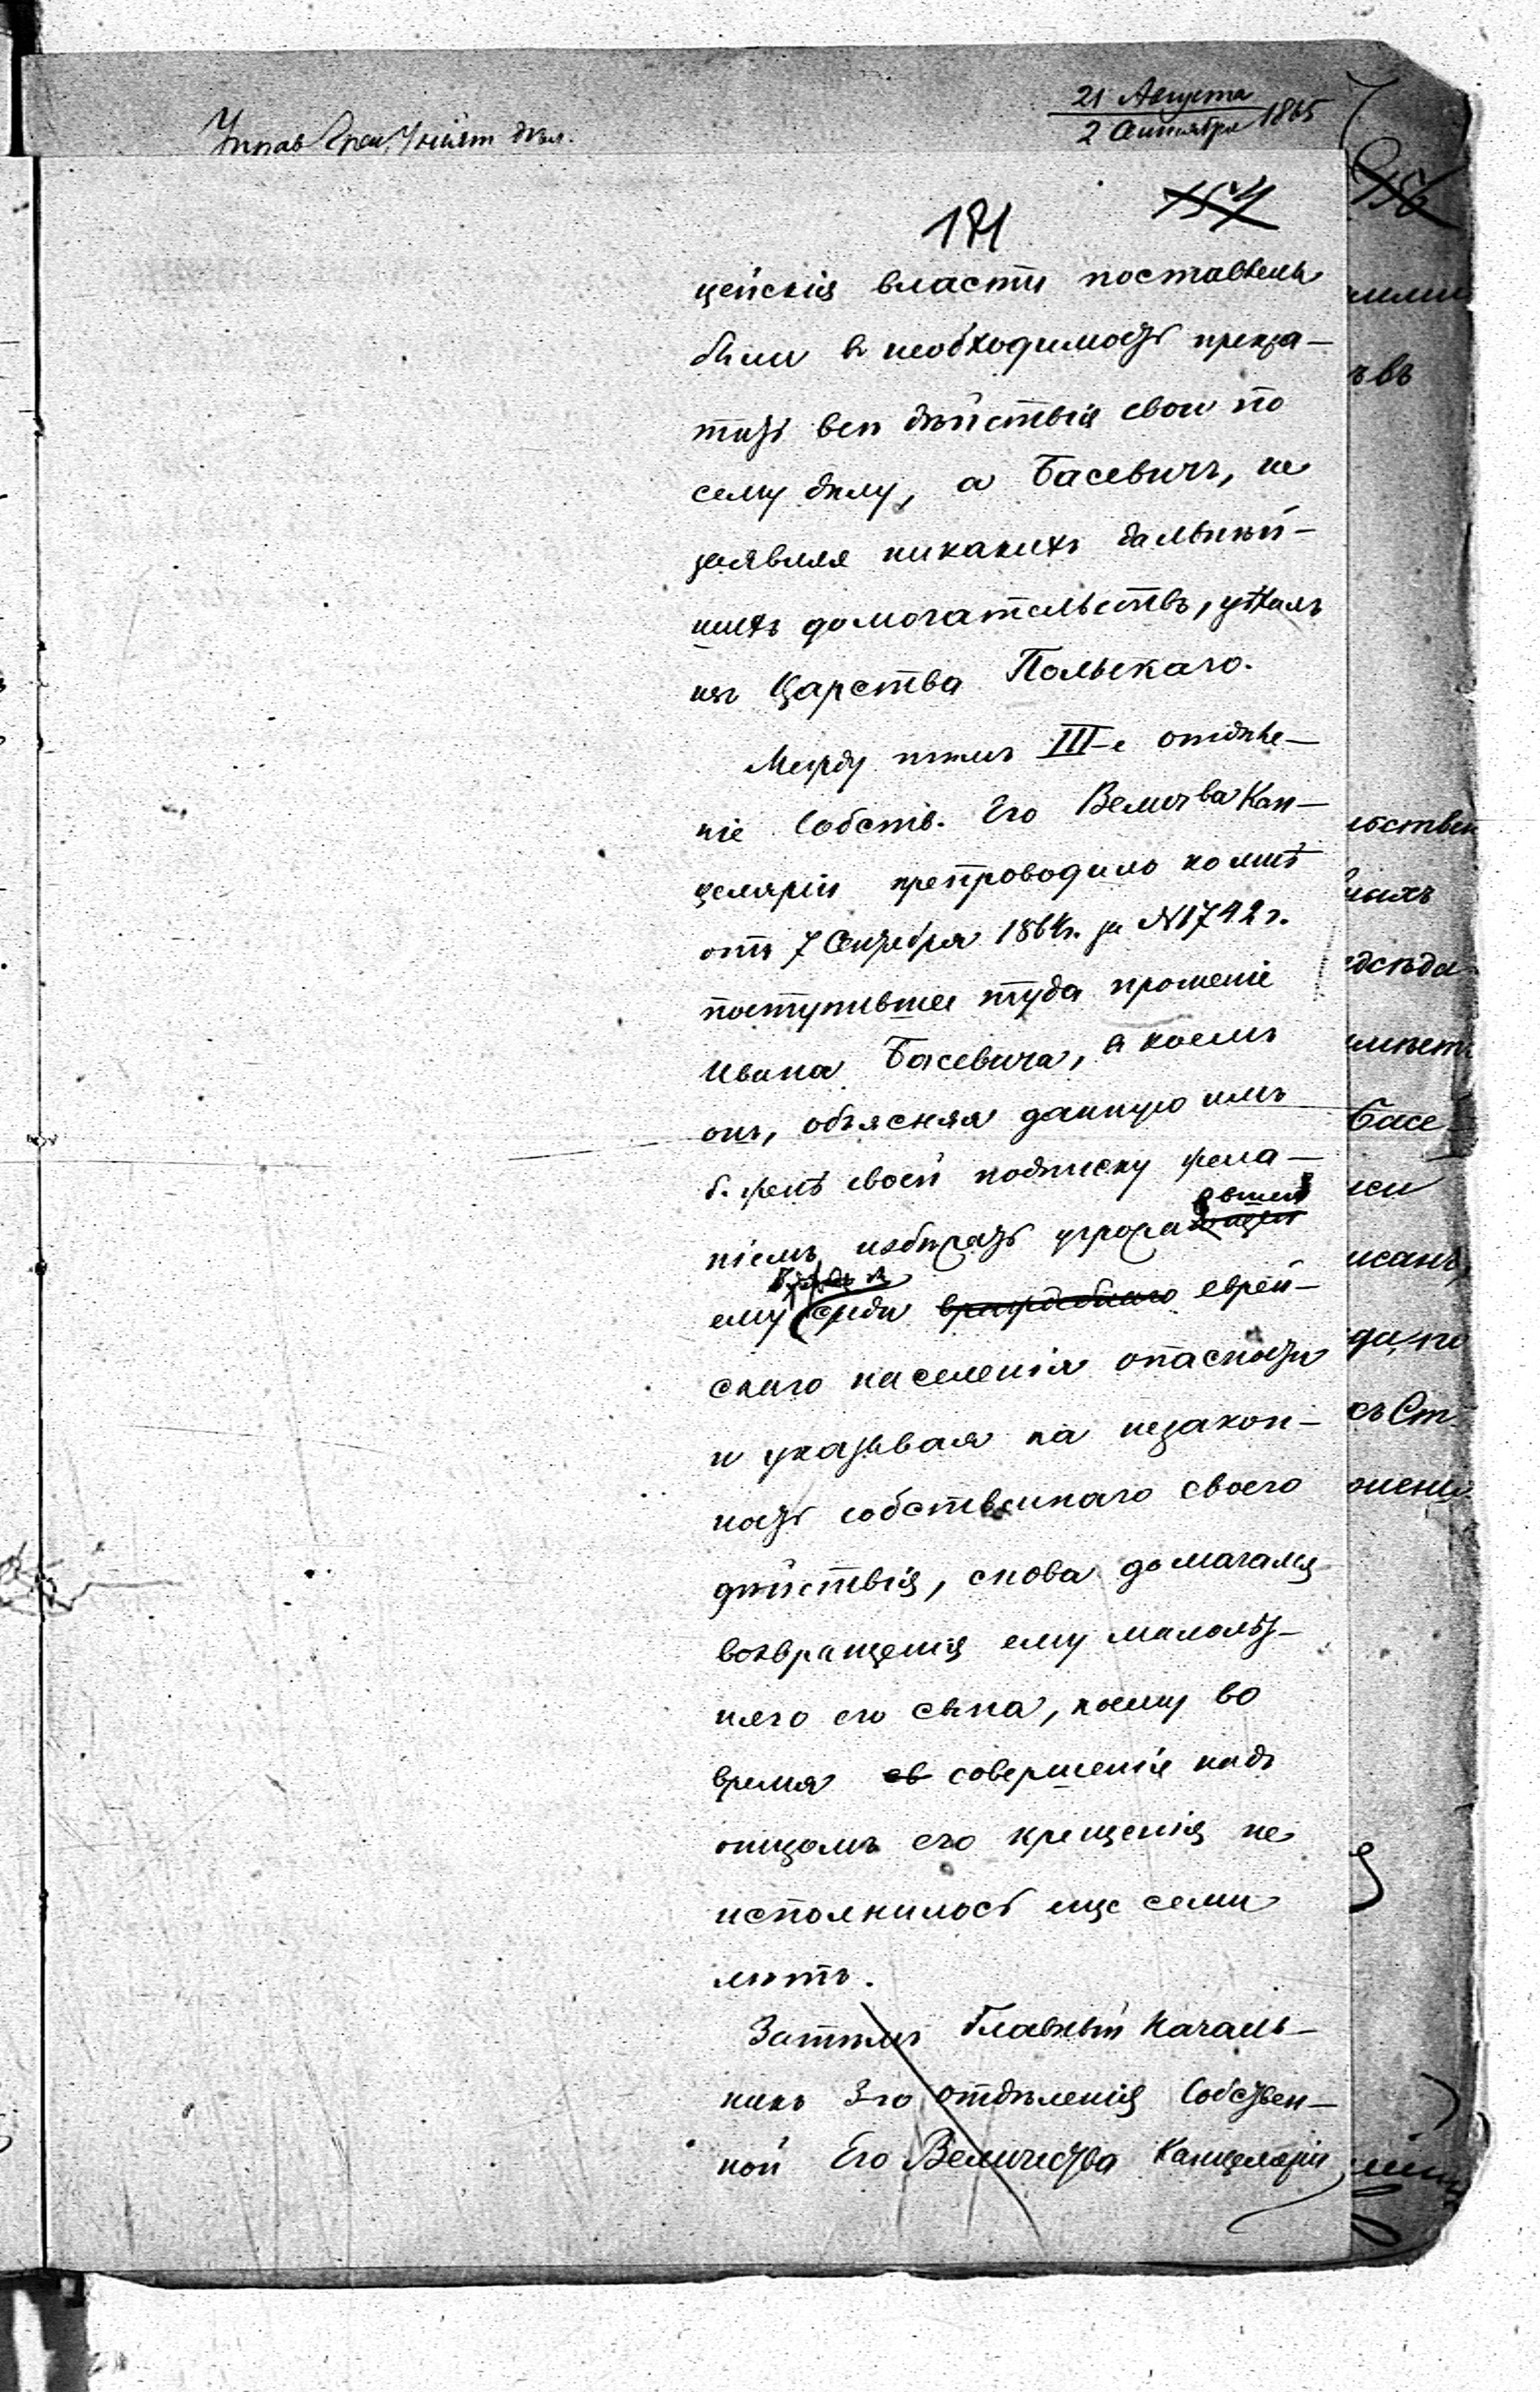 Управ Греч. Уніят дѣл.
21 Августа
2 Сентября 1865
181
154
156
цейскія власти поставлены
были въ необходимость прекра-
тить всѣ дѣйствія свои по
сему дѣлу, а Басевичъ, не
заявляя никакихъ дальнѣй-
шихъ домогательствъ, уѣхалъ
изъ Царства Польскаго.
Между тѣмъ III-е отдѣле-
ніе Собств. Его Велич-ва Кан-
целяріи препроводило ко мнѣ
отъ 7 Октября 1864 г. за N 1742 г.
поступившее туда прошеніе
Ивана Басевича, въ коемъ
онъ, объясняя данную имъ
б. женѣ своей подписку жела-
ніемъ избѣжать угрожавшей
ему среди враждебнаго еврей-
скаго населенія опасности
и указывая на незакон-
ность собственнаго своего
дѣйствія, снова домагался
возвращенія ему малолѣт-
няго его сына, коему во
время св совершенія надъ
отцомъ его крещенія не
исполнилось еще семи
лѣтъ.
Затѣмъ Главный Началь-
никъ 3го отдѣленія Собствен-
ной Его Величества Канцеляріи